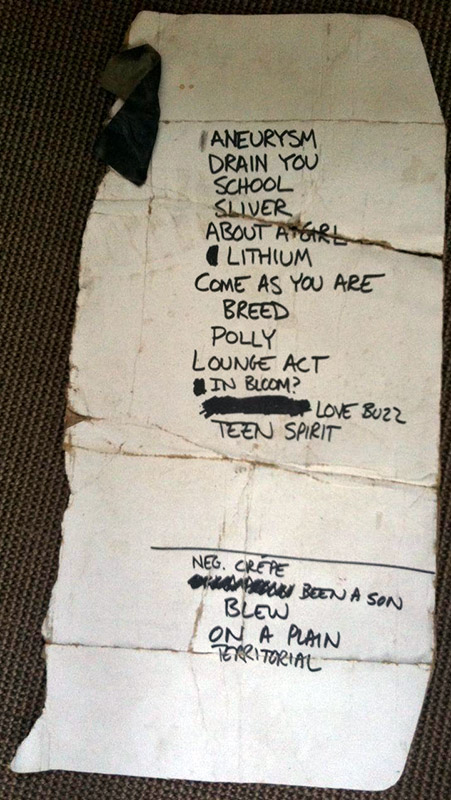 ANEURYSM
DRAIN YOU
SCHOOL
SLIVER
ABOUT A GIRL
LITHIUM
COME AS YOU ARE
BREED
POLLY
LOUNGE ACT
IN BLOOM?
LOVE BUZZ
TEEN SPIRIT
NEG. CRÉPE
BEEN A SON
BLEW
ON A PLAIN
TERRITORIAL